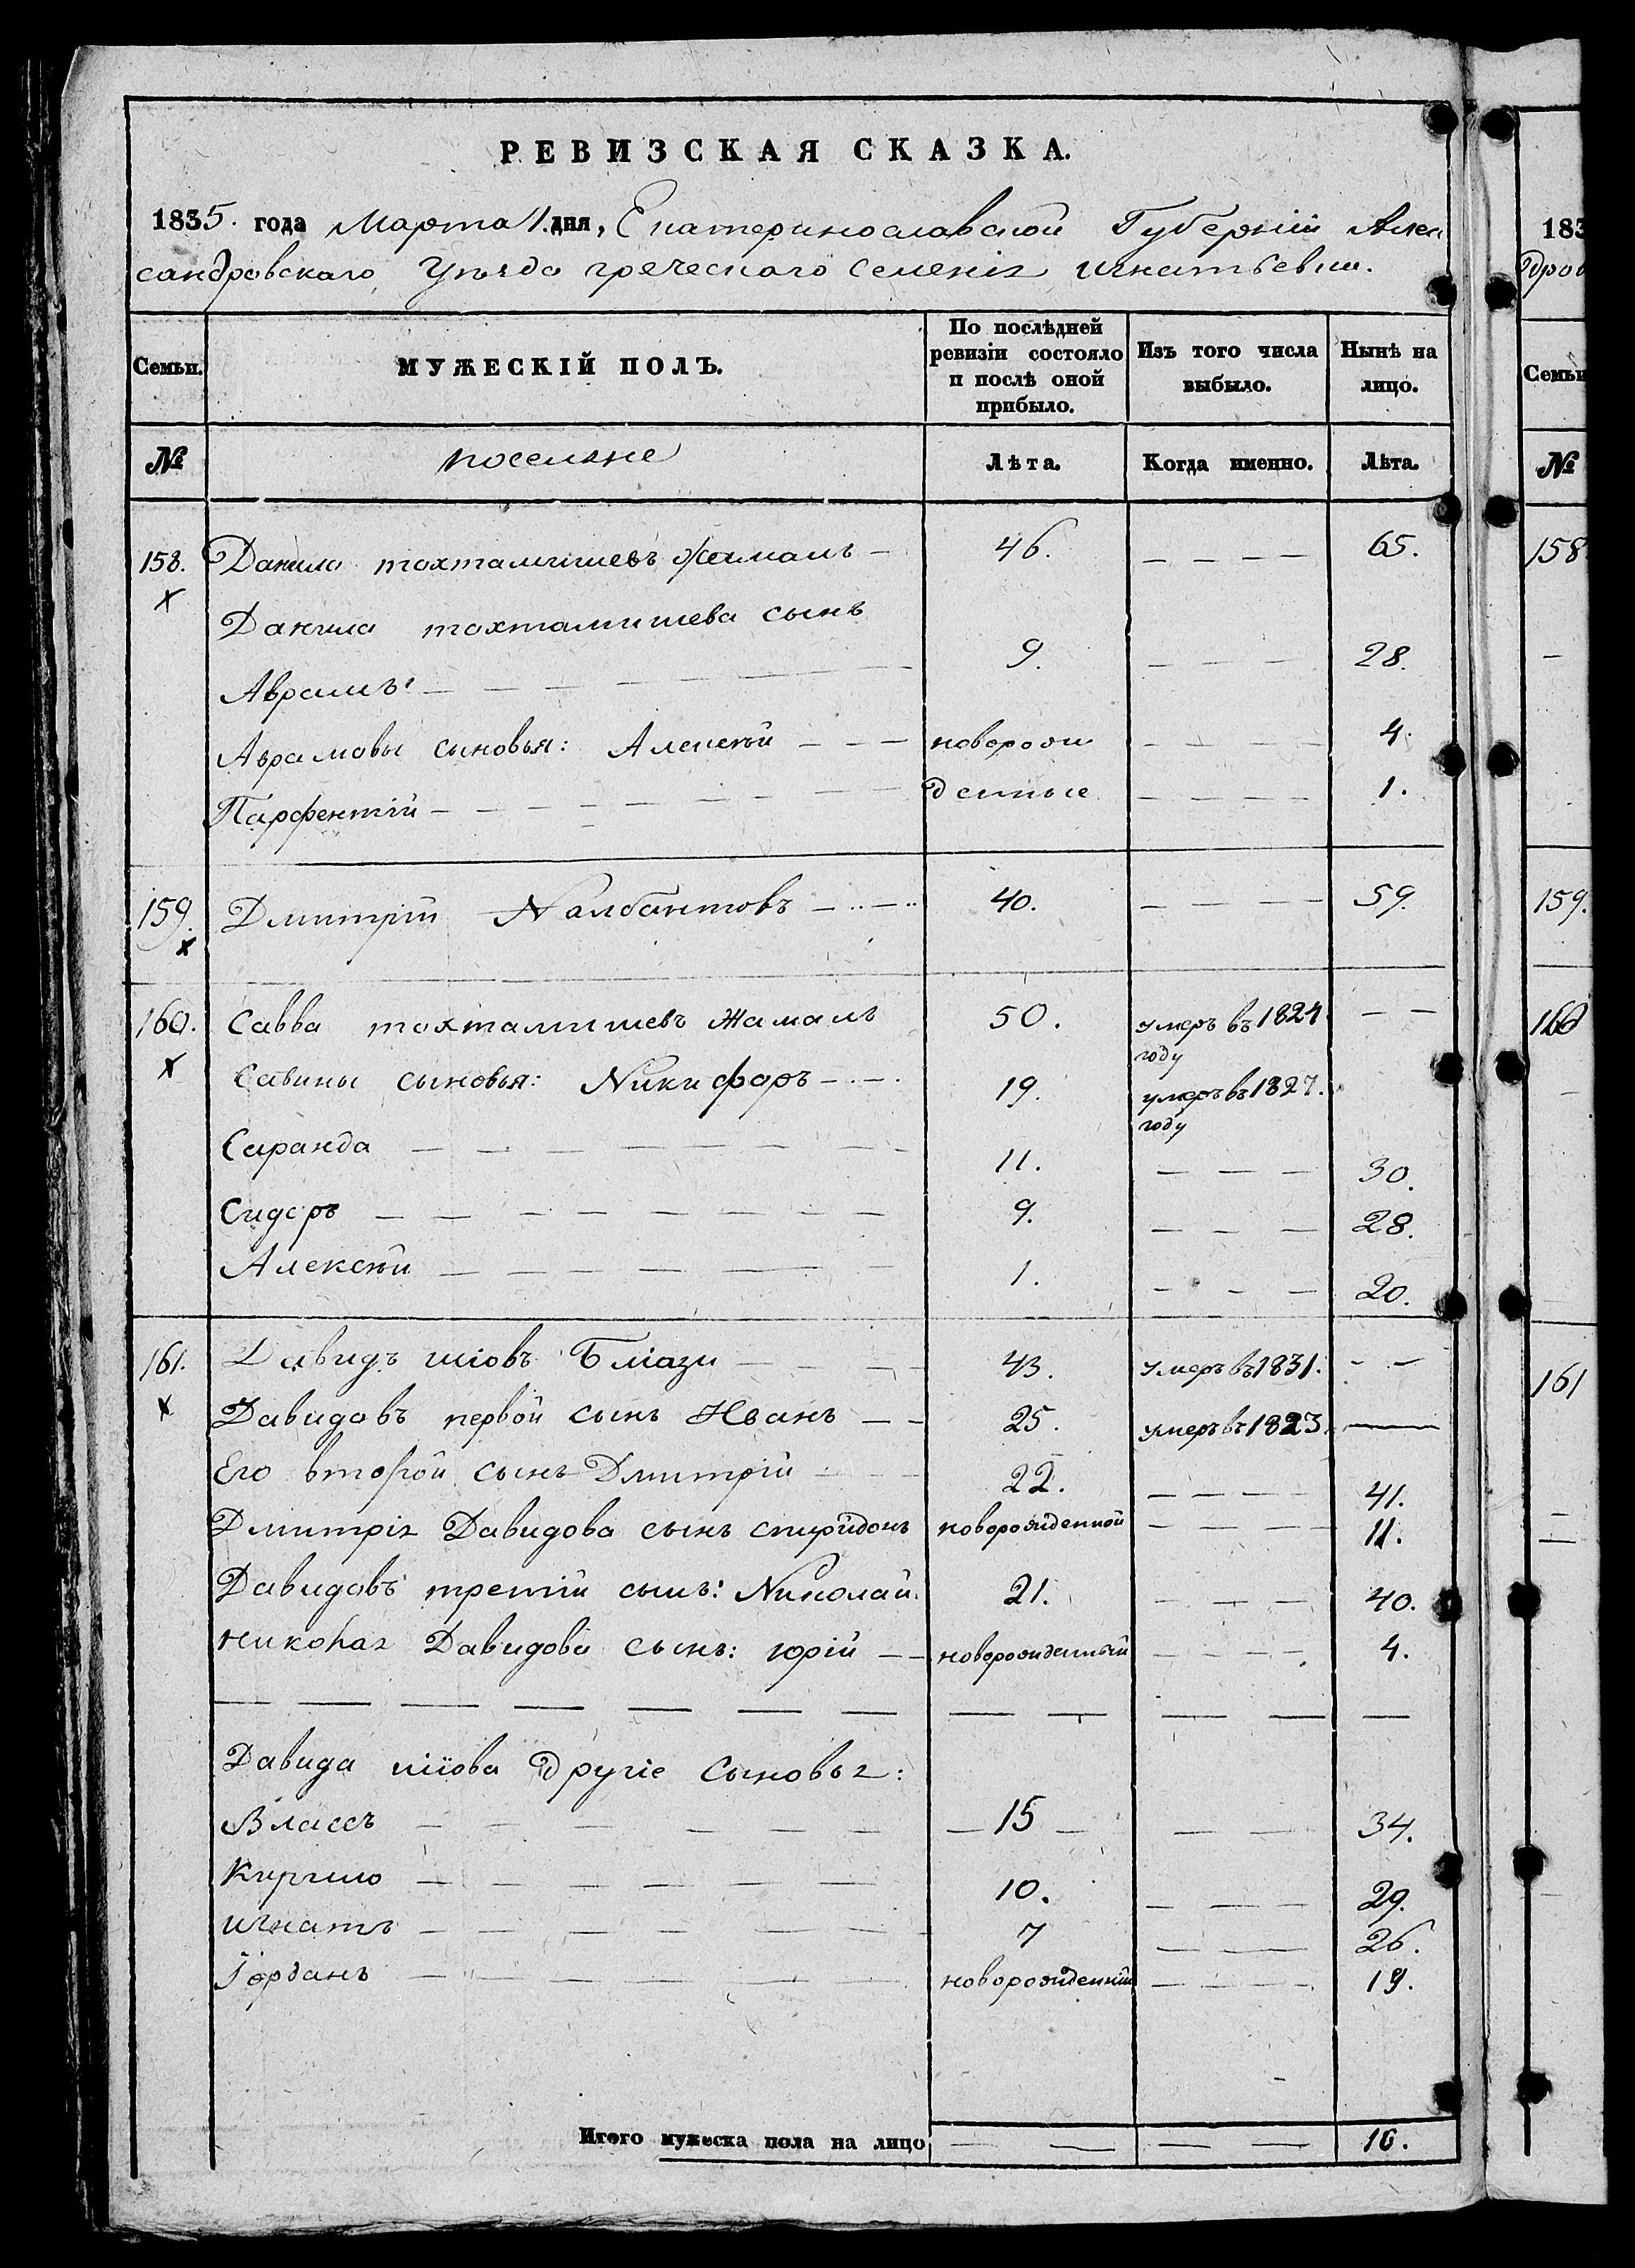 РЕВИЗСКАЯ СКАЗКА.
1835. года Марта 1. дня, Екатеринославской Губерніи Алек
сандровскаго Уѣзда греческаго селенія Игнатьевки.
Семьи. МУЖЕСКІЙ ПОЛЪ. По послѣдней ревизіи состояло и послѣ оной прибыло. Изъ того числа выбыло. Нынѣ на лицо.
№ поселяне Лѣта. Когда именно. Лѣта.
158. Данило тохтамышевъ Жамамъ — 46. — — — — 65.
х
Данила тохтамышева сынъ
Аврамъ: — — — 9. — — — 28.
Аврамовы сыновья: Алексѣй — — — новорож — — — — 4.
Парфентій — — — денные — — — — 1.
159. Дмитрій Налбантовъ — 40. — — — — 59.
х
160. Савва тохтамышевъ Жамамъ 50. умеръ въ 1824 году — —
х
Савины сыновья: Никифоръ — 19. умеръ въ 1827. году
Саранда — — — 11. — — — 30.
Сидоръ — — — 9. — — — 28.
Алексѣй — — — 1. — — — 20.
161. Давидъ шіовъ Бліази — — 43. умеръ въ 1831. — —
х
Давидовъ первой сынъ Иванъ — — 25. умеръ въ 1823. —
Его второй сынъ Дмитрій — — 22. — — — — 41.
Дмитрія Давидова сынъ спиридонъ новорожденной — — — — 11.
Давидовъ третій сынъ: Николай. 21. — — — 40.
николая Давидова сынъ: юрій — — новорожденный — — — — 4.
Давида шіова другіе сыновья:
Власъ — — — 15 — — 34.
Кирило — — — 10. — — — 29.
игнатъ — — — 7 — — — 26.
Іорданъ — — — новорожденній — — — — 19.
Итого мужеска пола на лицо — — — — 16.
183
дров
Семьи
№
158
159.
160
161